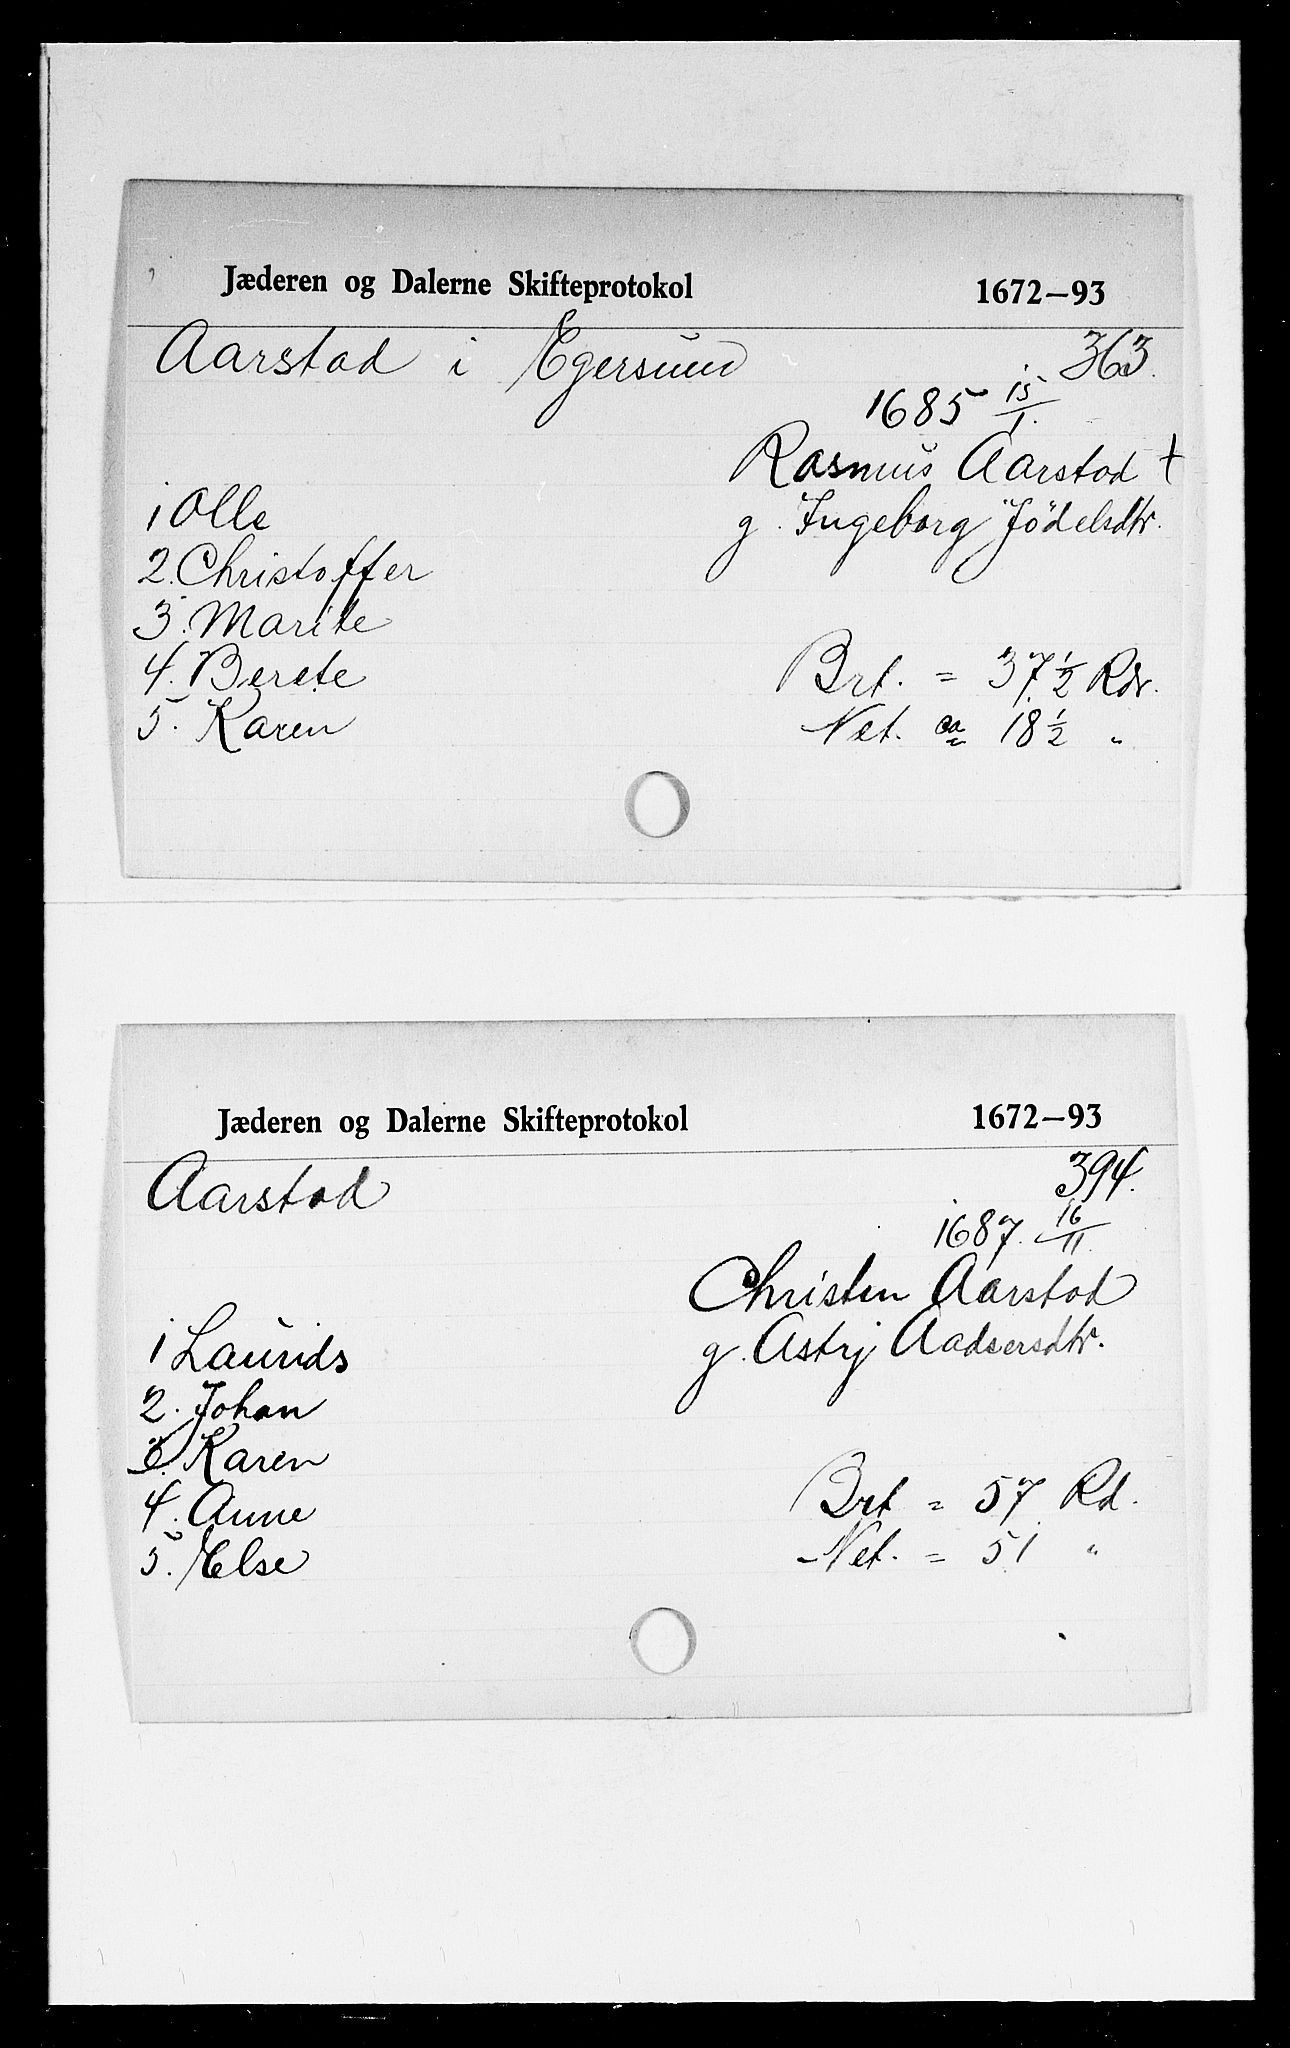 Jæderen og Dalerne Skifteprotokol 1672–93
Aarstad i Egersund 363.
1685 15/1.
Rasmus Aarstad †
g. Ingeborg "Jödelsdtr.
1 Olle
2. Christoffer
3. Marite
4. Berete
5. Karen
Brt. = 37 1/2 Rdr.
Net. ca = 18 1/2 "
Jæderen og Dalerne Skifteprotokol 1672–93
Aarstad 394.
1687. 16/11.
Christen Aarstad
g. Astrj Aadsersdtr.
1 Laurids
2. Johan
3. Karen
4. Anne
5. Else
Brt = 57 Rd.
Net. = 51 "